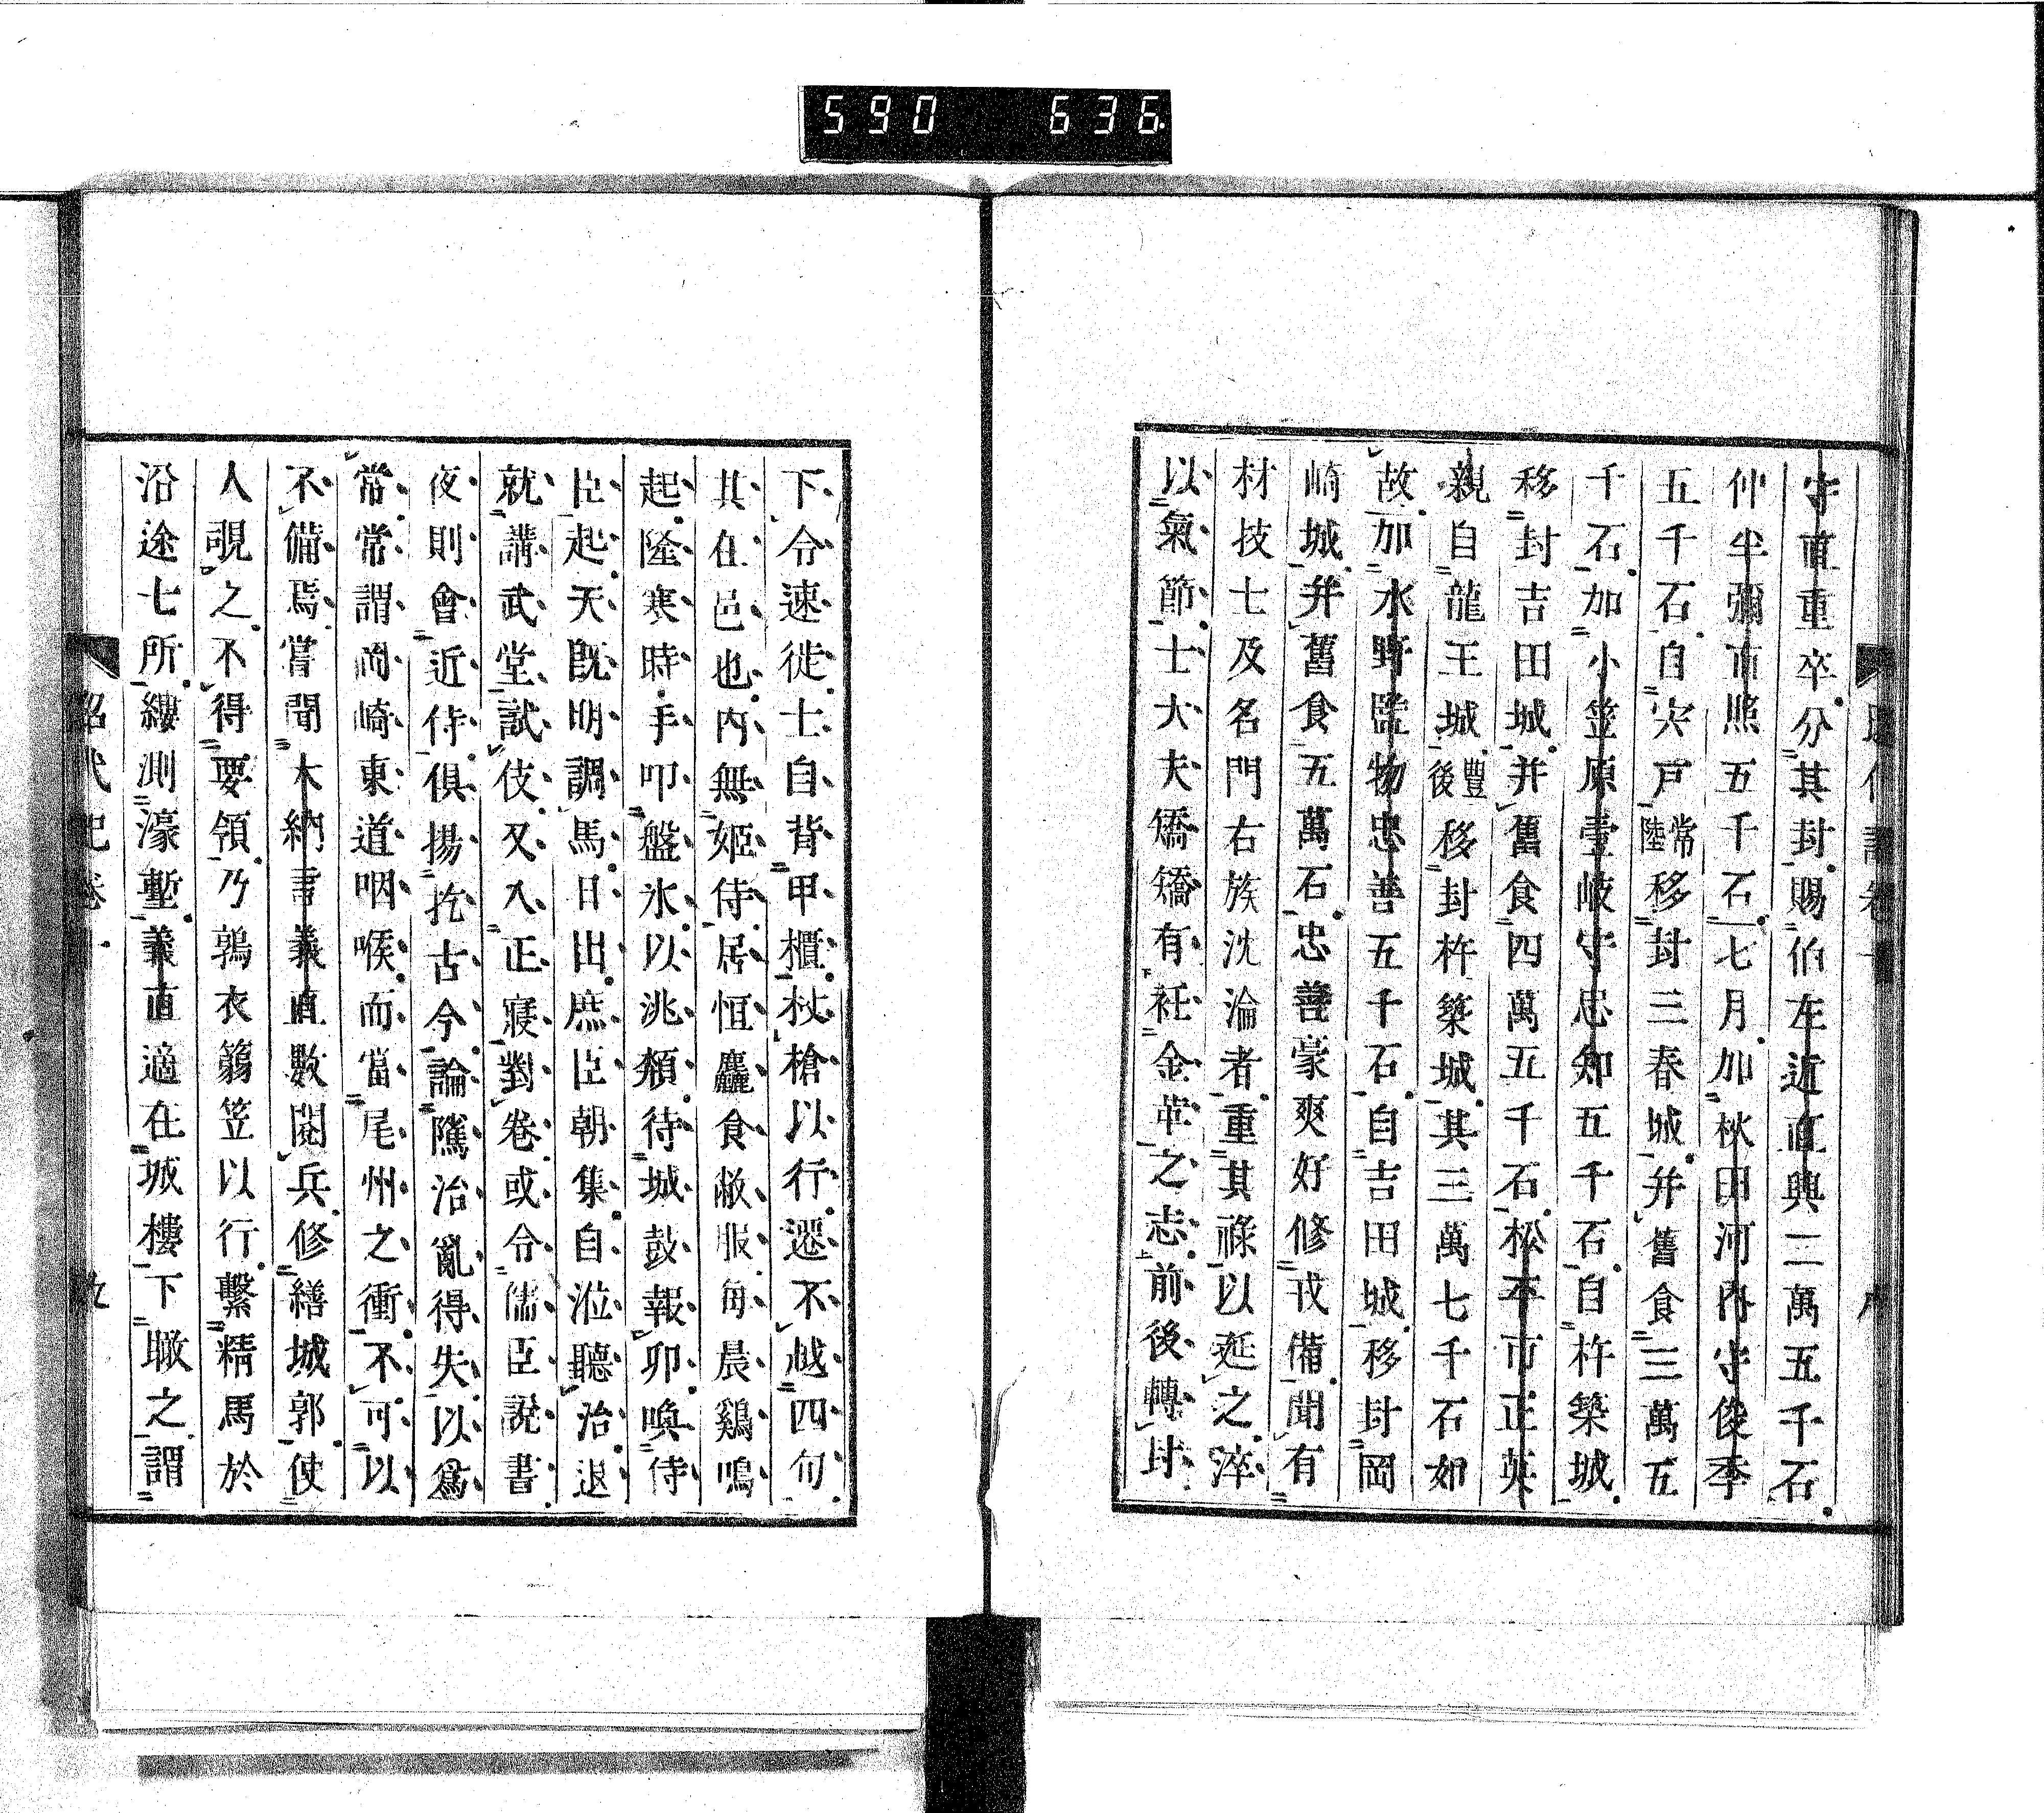 590 636
守直重卒分其封賜伯左近直興二萬五千石
仲半彌直照五千石七月加秋田河内守俊季
五千石自宍戸常陸移封三春城并舊食三萬五
千石加小笠原壹岐守忠知五千石自杵築城
移封吉田城并舊食四萬五千石松平市正英
親自龍王城豐後移封杵築城其三萬七千石如
故加水野監物忠善五千石自吉田城移封岡
崎城并舊食五萬石忠善豪爽好修戎備聞有
材技士及名門右族沈淪者重其祿以延之淬
以氣節士大夫矯矯有衽金革之志前後轉封
下令速徙士自背甲櫃杖槍以行遷不越四旬
其在邑也内無姬侍居恒麤食敝服每晨鷄鳴
起隆寒時手叩盤氷以洮頮待城鼓報卯喚侍
臣起天既明調馬日出庶臣朝集自涖聽治退
就講武堂試伎又入正寢對卷或令儒臣説書
夜則會近侍俱揚扢古今論隲治亂得失以爲
常常謂岡崎東道咽喉而當尾州之衝不可以
不備焉嘗聞大納言義直數閲兵修繕城郭使
人覗之不得要領乃鶉衣篛笠以行繫精馬於
沿途七所縷測濠塹義直適在城樓下瞰之謂
昭代記卷十 九